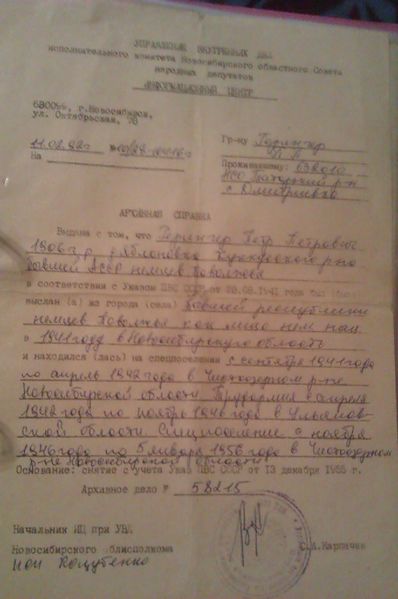 УПРАВЛЕНИЕ ВНУТРЕННИХ ДЕЛ
исполнительного комитета Новосибирского областного Совета
народных депутатов
ИНФОРМАЦИОННЫЙ ЦЕНТР
г.Новосибирск,
ул. Октябрьская, 78
11.02.92г
На
Гр-ну Герингер
П.П.
Проживающему: 632010
НСО Татарский р-н
с Дмитриевка
АРХИВНАЯ СПРАВКА
Выдана с том, что Герингер Петр Петрович
1906 г.р. д Яблоновка Куккусского р-на
бывшей АССР немцев Поволжья
в соответствии с Указом ПВС СССР от 28.08.1941 года был
выслан (а) из города (села) бывшей республики
немцев Поволжья как лицо нем нац
в 1941 году в Новосибирскую область
и находился (лась) на спецпоселении с сентября 1941 года
по апрель 1942 года в Чистоозерном р-не
Новосибирской области Трудармия с апреля
1942 года по ноябрь 1946 года в Ульянов-
ской области. Спецпоселение с ноября
1946 года по 5 января 1956 года в Чистоозерном
р-не Новосибирской области
Основание: снятие с учета Указ ПВС СССР от 13 декабря 1955 г.
Архивное дело № 58215
Начальник ИЦ при УВД
Новосибирского облисполкома
С.И.Карпачев
исп